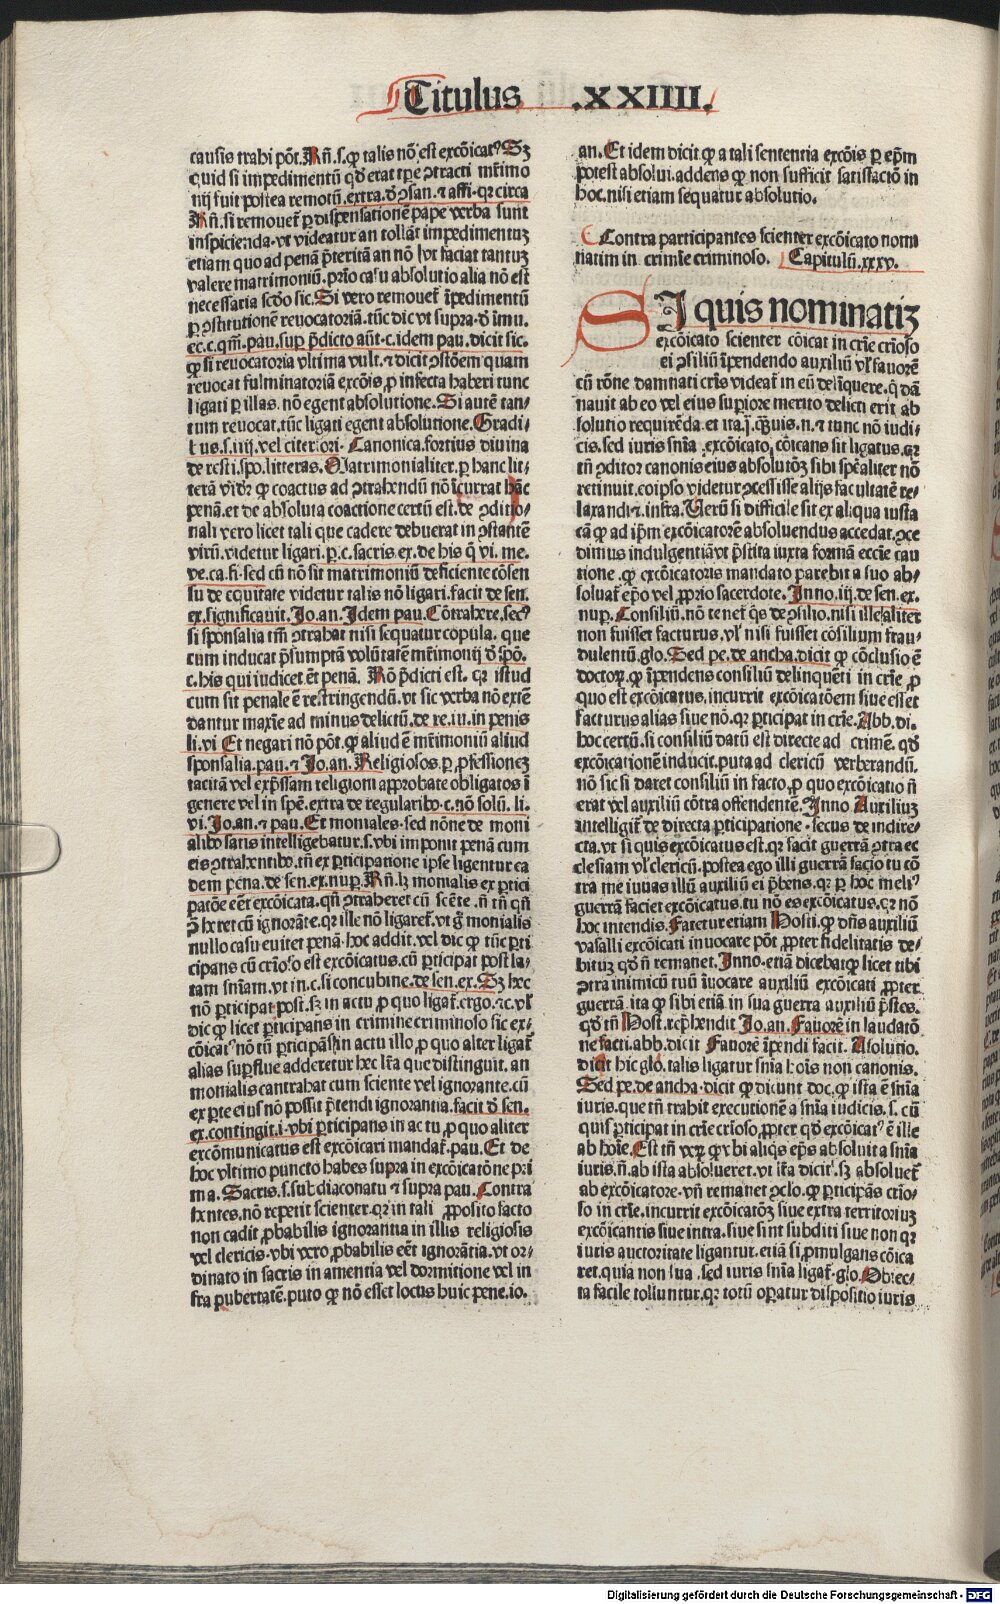 Titulus .XXIIII.
causis trahi põt. Rñ. s. ꝙ talis nõ est excõicatꝰ Sꝫ
quid si impedimentũ qđ erat tꝑe ꝯtracti mr̃imo
nij fuit postea remotũ. extra. đ ꝯsan. ⁊ affi. qꝛ circa
Rñ. si remouet̃ ꝑ dispensationẽ pape verba sunt
inspicienda. vt videatur an tollãt impedimentuꝫ
etiam quo ad penã p̃teritã an nõ sꝫ faciat tantuꝫ
valere matrimoniũ. prĩo casu absolutio alia nõ est
necessaria scđo sic. Si vero remouet̃ ĩpedimentũ
ꝑ ꝯstitutionẽ reuocatoriã. tũc dic vt supra. đ imu.
ec. c. qm̃. pau. suꝑ p̃dicto aũt. c. idem pau. dicit sic.
ꝙ si reuocatoria vltima vult. ⁊ dicit ꝯstõem quam
reuocat fulminatoriã excõis ꝓ infecta haberi tunc
ligati ꝑ illas. nõ egent absolutione. Si autẽ tan⸗
tum reuocat. tũc ligati egent absolutione. Gradi⸗
bus. s. iiij. vel citeriori. Canonica. fortius diuina
de resti. spo. litteras. Matrimonialiter. ꝑ hanc lit⸗
terã vĩđr ꝙ coactus ad ꝯtrahendũ nõ ĩcurrat hãc
penã. et de absoluta coactione certũ est. de ꝯditio⸗
nali vero licet tali que cadere debuerat in ꝯstantẽ
virũ. videtur ligari. ꝑ. c. sacris. ex. de his q̃ vi. me.
ve. ca. fi. sed cũ nõ sit matrimoniũ deficiente cõsen
su de equitate videtur talis nõ ligari. facit de sen.
ex. significauit. Jo. an. Idem pau. Cõtrahere. secꝰ
si sponsalia tm̃ ꝯtrahat nisi sequatur copula. que
cum inducat p̃sumptã volũtatẽ mr̃imonij đ spõ.
c. his qui iudicet. ẽt penã. Rõ p̃dicti est. qꝛ istud
cum sit penale ẽ restringendũ. vt sic verba nõ extẽ
dantur maxĩe ad minus delictũ. de re. iu. in penis
li. vi Et negari nõ põt. ꝙ aliud ẽ mr̃imoniũ aliud
sponsalia. pau. ⁊ Jo. an. Religiosos. ꝑ ꝓfessioneꝫ
tacitã vel exp̃ssam religioni approbate obligatos ĩ
genere vel in spẽ. extra de regularibꝰ. c. nõ solũ. li.
vi. Jo. an. ⁊ pau. Et moniales. sed nõne de moni
alibꝰ satis intelligebatur. s. vbi imponit penã cum
eis ꝯtrahentibꝰ. tñ ex ꝑticipatione ipse ligentur ea
dem pena. de sen. ex. nuꝑ. Rñ. lꝫ monialis ex ꝑtici
patõe eẽt excõicata. qñ ꝯtraheret cũ sciẽte. ñ tñ qñ
ꝯ̃hxret cũ ignorãte. qꝛ ille nõ ligaret̃. vt g̃ monialis
nullo casu euitet penã. hoc addit. vel dic ꝙ tũc ꝑti
cipans cũ crĩoso est excõicatus. cũ ꝑticipat post la⸗
tam snĩam. vt in. c. si concubine. de sen. ex. Sꝫ hec
nõ ꝑticipat post. sꝫ in actu ꝓ quo ligat̃. ergo. ⁊c. vl̃
dic ꝙ licet ꝑticipans in crimine criminoso sic ex⸗
cõicatꝰ nõ tñ ꝑticipãs in actu illo ꝓ quo alter ligat̃
alias suꝑflue adderetur hec lr̃a que distinguit. an
monialis cantrahat cum sciente vel ignorante. cũ
ex ꝑte eius nõ possit p̃tendi ignorantia. facit đ sen.
ex. contingit. i. vbi ꝑticipans in actu ꝓ quo aliter
excõmunicatus est excõicari mandat̃. pau. Et de
hoc vltimo puncto habes supra in excõicatõne pri
ma. Sacris. s. subdiaconatu ⁊ supra pau. Contra
hentes. nõ reꝑerit scienter. qꝛ in tali ꝓposito facto
non cadit ꝓbabilis ignorantia in illis religiosis
vel clericis. vbi vero ꝓbabilis eẽt ignorãtia. vt or⸗
dinato in sacris in amentia vel dormitione vel in
fra pubertatẽ. puto ꝙ nõ esset locus huic pene. io.
an. Et idem dicit ꝙ a tali sententia excõis ꝑ ep̃m
potest absolui. addens ꝙ non sufficit satisfactiõ in
hoc. nisi etiam sequatur absolutio.
Contra participantes scienter excõicato nomi
natim in crimĩe criminoso. Capitulũ. xxxv.
SI quis nominatiꝫ
excõicato scienter cõicat in crĩe crĩoso
ei ꝯsiliũ ĩpendendo auxiliũ vl̃ fauorẽ
cũ rõne damnati crĩs videat̃ in eũ delĩquere. q̃ dã
nauit ab eo vel eius suꝑiore merito delicti erit ab
solutio requirẽda. et ita. j. q̃uis. n. ⁊ tunc nõ iudi⸗
cis. sed iuris snĩa excõicato cõicans sit ligatus. qꝛ
tñ ꝯditor canonis eius absolutõꝫ sibi spẽaliter nõ
retinuit. eoipso videtur ꝯcessisse alijs facultatẽ re⸗
laxandi. ⁊. infra. Verũ si difficile sit ex aliqua iusta
cã ꝙ ad ip̃m excõicatorẽ absoluendus accedat. ꝯce
dimus indulgentiã vt p̃stita iuxta formã eccĩe cau
tione. ꝙ excõicatoris mandato parebit a suo ab⸗
soluat̃ ep̃o vel ꝓprio sacerdote. Inno. iij. de sen. ex.
nuꝑ. Consiliũ. nõ tenet̃ q̃s de ꝯsilio. nisi ille aliter
non fuisset facturus. vl̃ nisi fuisset cõsilium frau⸗
dulentũ. glo. Sed pe. de ancha. dicit ꝙ cõclusio ẽ
doctoꝝ. ꝙ ĩpendens consiliũ delinquẽti in crĩe ꝓ
quo est excõicatus. incurrit excõicatõem siue esset
facturus alias siue nõ. qꝛ ꝑticipat in crĩe. Abb. di.
hoc certũ. si consiliũ datũ est directe ad crimẽ. qđ
excõicationẽ inducit. puta ad clericũ verberandũ.
nõ sic si daret consiliũ in facto. ꝓ quo excõicatio ñ
erat vel auxiliũ cõtra offendentẽ. Inno Auxiliuꝫ
intelligit̃ de directa ꝑticipatione. secus de indire⸗
cta. vt si quis excõicatus est. qꝛ facit guerrã ꝯtra ec
clesiam vl̃ clericũ. postea ego illi guerrã facio tu cõ
tra me iuuas illũ auxiliũ ei p̃bens. qꝛ ꝑ hoc meliꝰ
guerrã faciet excõicatus. tu nõ es excõicatus. qꝛ nõ
hoc intendis. Fatetur etiam Hosti. ꝙ dñs auxiliũ
vasalli excõicati inuocare põt ꝓpter fidelitatis de⸗
bituꝫ qđ ñ remanet. Inno. etiã dicebat ꝙ licet tibi
ꝯtra inimicũ tuũ ĩuocare auxiliũ excõicati ꝓpter
guerrã. ita ꝙ sibi etiã in sua guerra auxiliũ p̃stes.
qđ tñ Host. rep̃hendit Jo. an. Fauorẽ in laudatõ
ne facti. abb. dicit Fauorẽ ĩpendi facit. Asolutio.
dicit hic glo. talis ligatur snĩa hoĩs non canonis.
Sed pe. de ancha. dicit ꝙ dicunt doc. ꝙ ista ẽ snĩa
iuris. que tñ trahit executionẽ a snĩa iudicis. s. cũ
quis ꝑticipat in crĩe crĩoso. ꝓpter qđ excõicatꝰ ẽ ille
ab hoĩe. Est tñ veꝝ ꝙ vbi aliq̃s ep̃s absoluit a snĩa
iuris. ñ. ab ista absolueret. vt ista dicit̃. sꝫ absoluet̃
ab excõicatore. vñ remanet ꝯclo. ꝙ ꝑticipãs crĩo⸗
so in crĩe. incurrit excõicatõꝫ siue extra territoriuꝫ
excõicantis siue intra. siue sint subditi siue non qꝛ
iuris auctoritate ligantur. etiã si ꝓmulgans cõica
ret. quia non sua. sed iuris snĩa ligat̃. glo. Obiec⸗
ta facile tolluntur. qꝛ totũ oꝑatur dispositio iuris
Digitalisierung gefördert durch die Deutsche Forschungsgemeinschaft - DFG